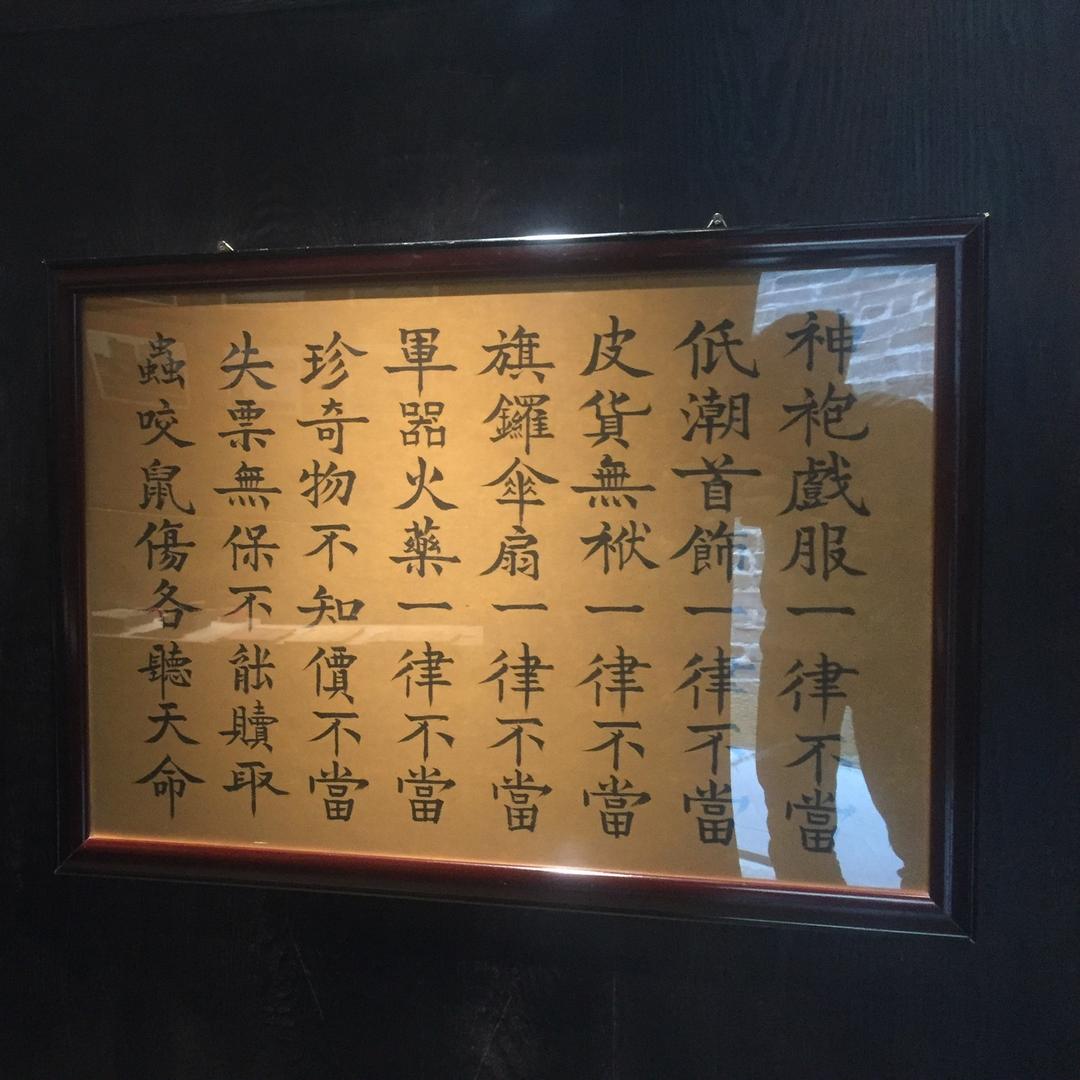 神袍戲服一律不當
低潮首飾一律不當
皮貨無袱一律不當
旗鑼傘扇一律不當
軍器火藥一律不當
珍奇物不知價不當
失票無保不能贖取
蟲咬鼠傷各聽天命